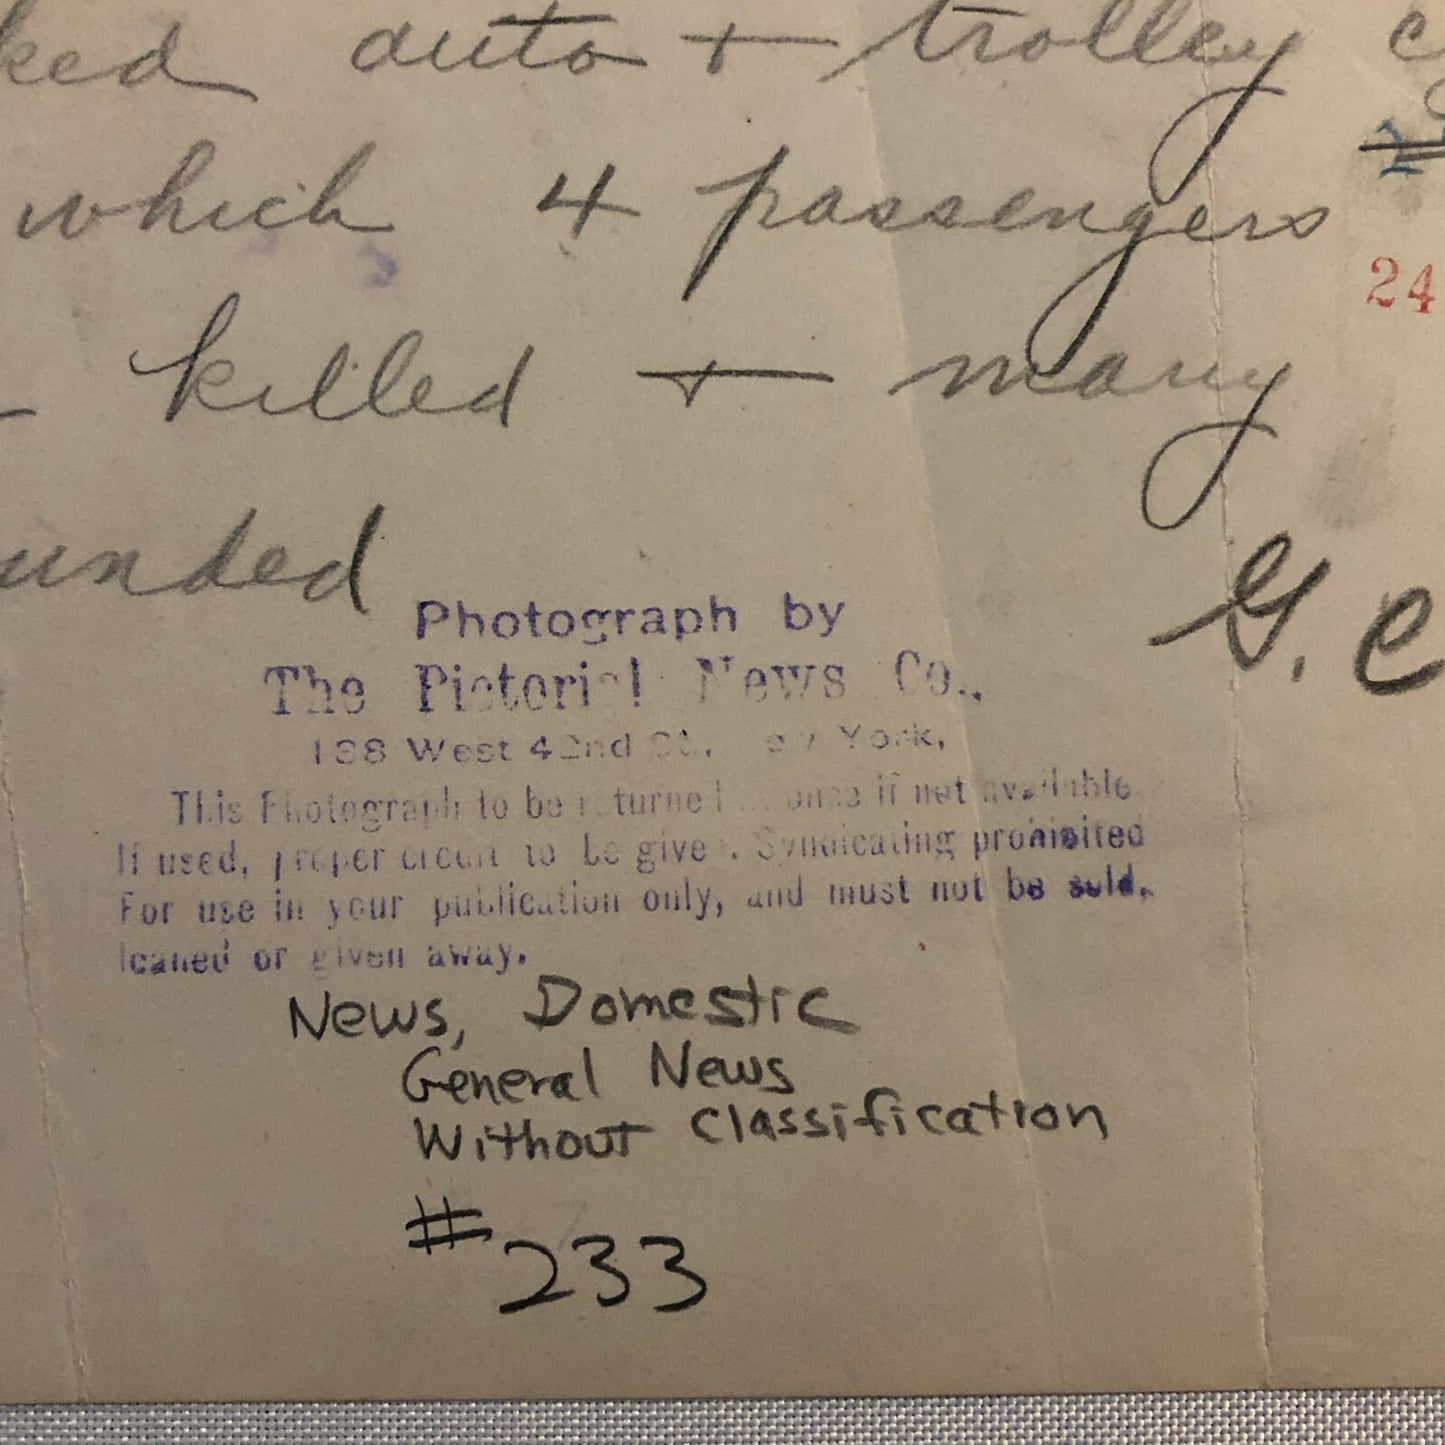 ked auto + trolley c
which 4 passengers
24
killed + many
unded
G. C
Photograph by
The Pictorial News Co.,
West 42nd St., New York,
This Photograph to be returned at once if not available.
If used, proper credit to be given. Syndicating prohibited
For use in your publication only, and must not be sold,
loaned or given away.
News, Domestic
General News
Without Classification
#233